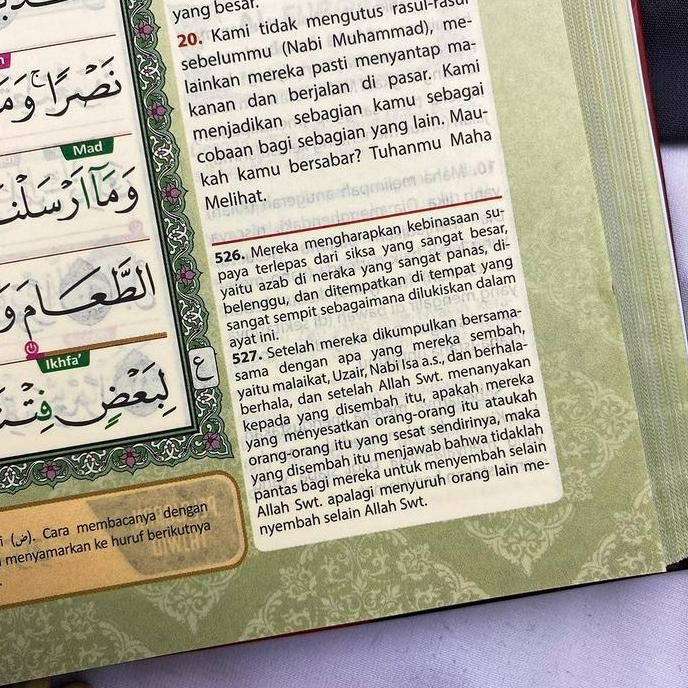 yang besar.
20. Kami tidak mengutus rasul-rasul
sebelummu (Nabi Muhammad), me-
lainkan mereka pasti menyantap ma-
kanan dan berjalan di pasar. Kami
menjadikan sebagian kamu sebagai
cobaan bagi sebagian yang lain. Mau-
kah kamu bersabar? Tuhanmu Maha
Melihat.
526. Mereka mengharapkan kebinasaan su-
paya terlepas dari siksa yang sangat besar,
yaitu azab di neraka yang sangat panas, di-
belenggu, dan ditempatkan di tempat yang
sangat sempit sebagaimana dilukiskan dalam
ayat ini.
527. Setelah mereka dikumpulkan bersama-
sama dengan apa yang mereka sembah,
yaitu malaikat, Uzair, Nabi Isa a.s., dan berhala-
berhala, dan setelah Allah Swt. menanyakan
kepada yang disembah itu, apakah mereka
yang menyesatkan orang-orang itu ataukah
orang-orang itu yang sesat sendirinya, maka
yang disembah itu menjawab bahwa tidaklah
pantas bagi mereka untuk menyembah selain
Allah Swt. apalagi menyuruh orang lain me-
nyembah selain Allah Swt.
نَصْرًاۚ
Mad
وَمَآ اَرْسَلْنَا
الطَّعَامَ
Ikhfa'
لِبَعْضٍ
ع
(ض). Cara membacanya dengan
menyamarkan ke huruf berikutnya